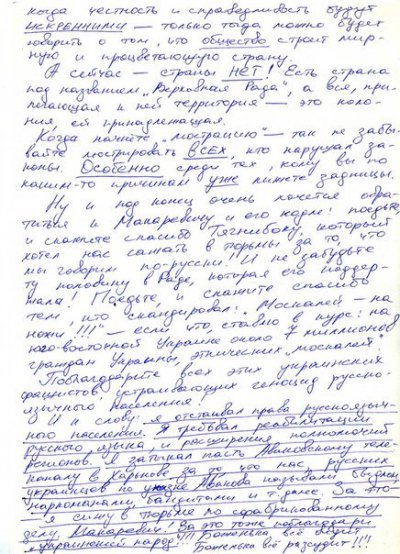 когда честность и справедливость будут
искренними — только тогда можно будет
говорить о том, что общество строит мир-
ную и процветающую страну.
А сейчас — страны НЕТ! Есть страна
под названием „Верховная Рада", а вся, при-
легающая к ней территория — это коло-
ния, ей принадлежащая.
Когда начнёте „люстрацию" — так не забы-
вайте люстрировать ВСЕХ кто нарушал за-
коны. Особенно среди тех, кому вы по
каким-то причинам уже лижете задницы.
Ну и под конец очень хочется обра-
титься к Макаревичу и его карме:
и скажете спасибо Тягнибоку, который
хотел нас сажать в тюрьмы за то, что
мы говорим по-русски!! И не забудьте
ту половину в Раде, которая его поддер-
жала! Поедьте, и скажите спасибо
тем, кто скандировал: „Москалей — на
ножи!!!" — если что, ставлю в курс: на
юго-восточной Украине около 7 миллионов
граждан Украины, этнических „москалей"
Поблагодарите всех этих украинских
фашистов устраивающих геноцид русско-
язычного населения!
И к слову: я отстаивал права русскоязыч-
ного населения. Я требовал реабилитации
русского языка и расширения полномочий
регионов. Я затыкал пасть Аваковскому теле-
каналу в Харькове за то что нас русских
украинцев по указке Авакова называли быдлом,
наркоманами, бандитами и т. далее. За это
я сижу в тюрьме по сфабрикованному
делу, Макаревич! За это тоже поблагодари
„украинский народ"!!! Боженька всё видит
Боженька всё рассудит!!!